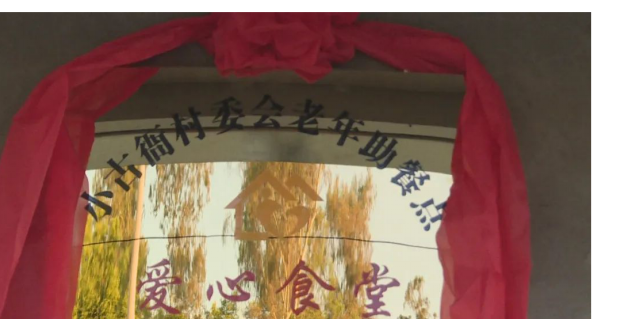 小古衕村委会老年助餐点
爱心食堂